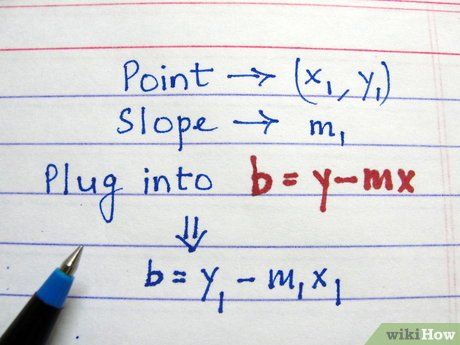 Point → (x₁, y₁)
Slope → m₁
Plug into b = y - mx
⇓
b = y₁ - m₁x₁
wikiHow